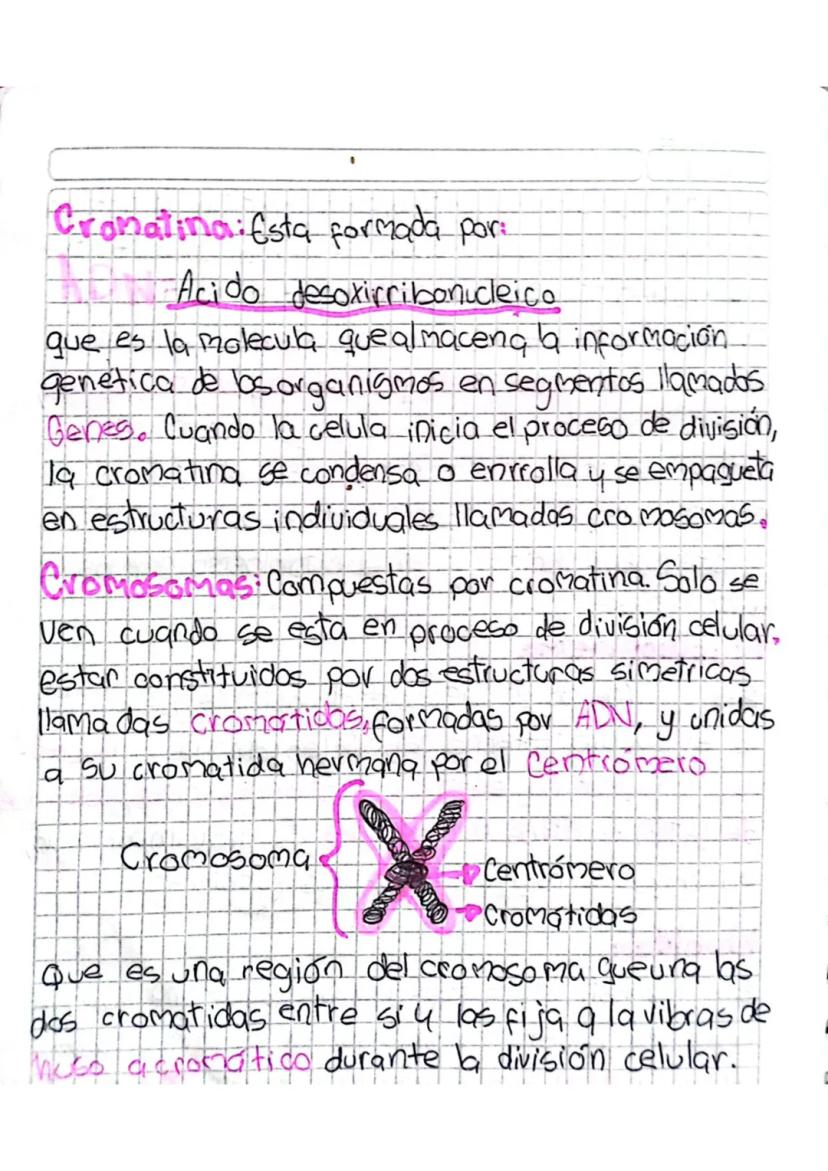 Cromatina: Esta formada por:
ADN Acido desoxirribonucleico
que es la molecula que almacena la información
genética de los organismos en segmentos llamados
Genes. Cuando la celula inicia el proceso de división,
la cromatina se condensa o enrrolla y se empaqueta
en estructuras individuales llamadas cromosomas.
Cromosomas: Compuestas por cromatina. Solo se
ven cuando se esta en proceso de división celular,
estar constituidos por dos estructuras simetricas
llamadas cromatidas, formadas por ADN, y unidas
a su cromatida hermana por el Centrómero
Cromosoma
Centrómero
Cromátidas
que es una región del cromosoma que una las
dos cromatidas entre si y las fija a la vibras de
huso acromático durante la división celular.